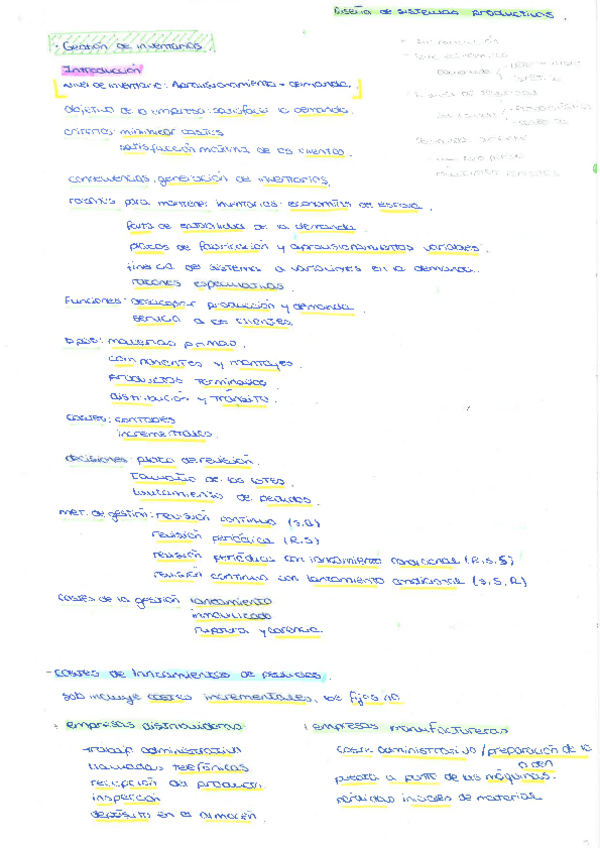 Diseño de sistemas productivos.
· Gestión de inventarios
Introducción
nivel de inventario: Aprovisionamiento - demanda.
objetivo de la empresa: satisfacer la demanda.
criterios: minimizar costes
satisfacción máxima de los clientes.
consecuencias: generación de inventarios.
razones para mantener inventarios: economías de escala.
falta de estabilidad de la demanda
plazos de fabricación y aprovisionamientos variables.
del sistema a variaciones en la demanda.
razones especulativas.
Funciones: desacoplar producción y demanda
servicio a los clientes
tipos: materias primas.
componentes y montajes.
productos terminados
distribución y tránsito.
costes: contables
incrementales.
decisiones: plazo de revisión.
tamaño de los lotes.
lanzamiento de pedidos.
met. de gestión: revisión continua (s,Q)
revisión periódica (R,S)
revisión periódica con lanzamiento condicional (R,s,S)
revisión continua con lanzamiento condicional (s,S,R)
costes de la gestión lanzamiento
inmovilizado
ruptura y carencia.
- costes de lanzamientos de pedidos.
solo incluye costes incrementales, los fijos no.
empresas distribuidoras
trabajo administrativo
llamadas telefónicas
recepción del producto.
inspección
depósito en el almacén.
empresas manufactureras
coste administrativo / preparación de la orden
puesta a punto de las máquinas.
pérdidas iniciales de material